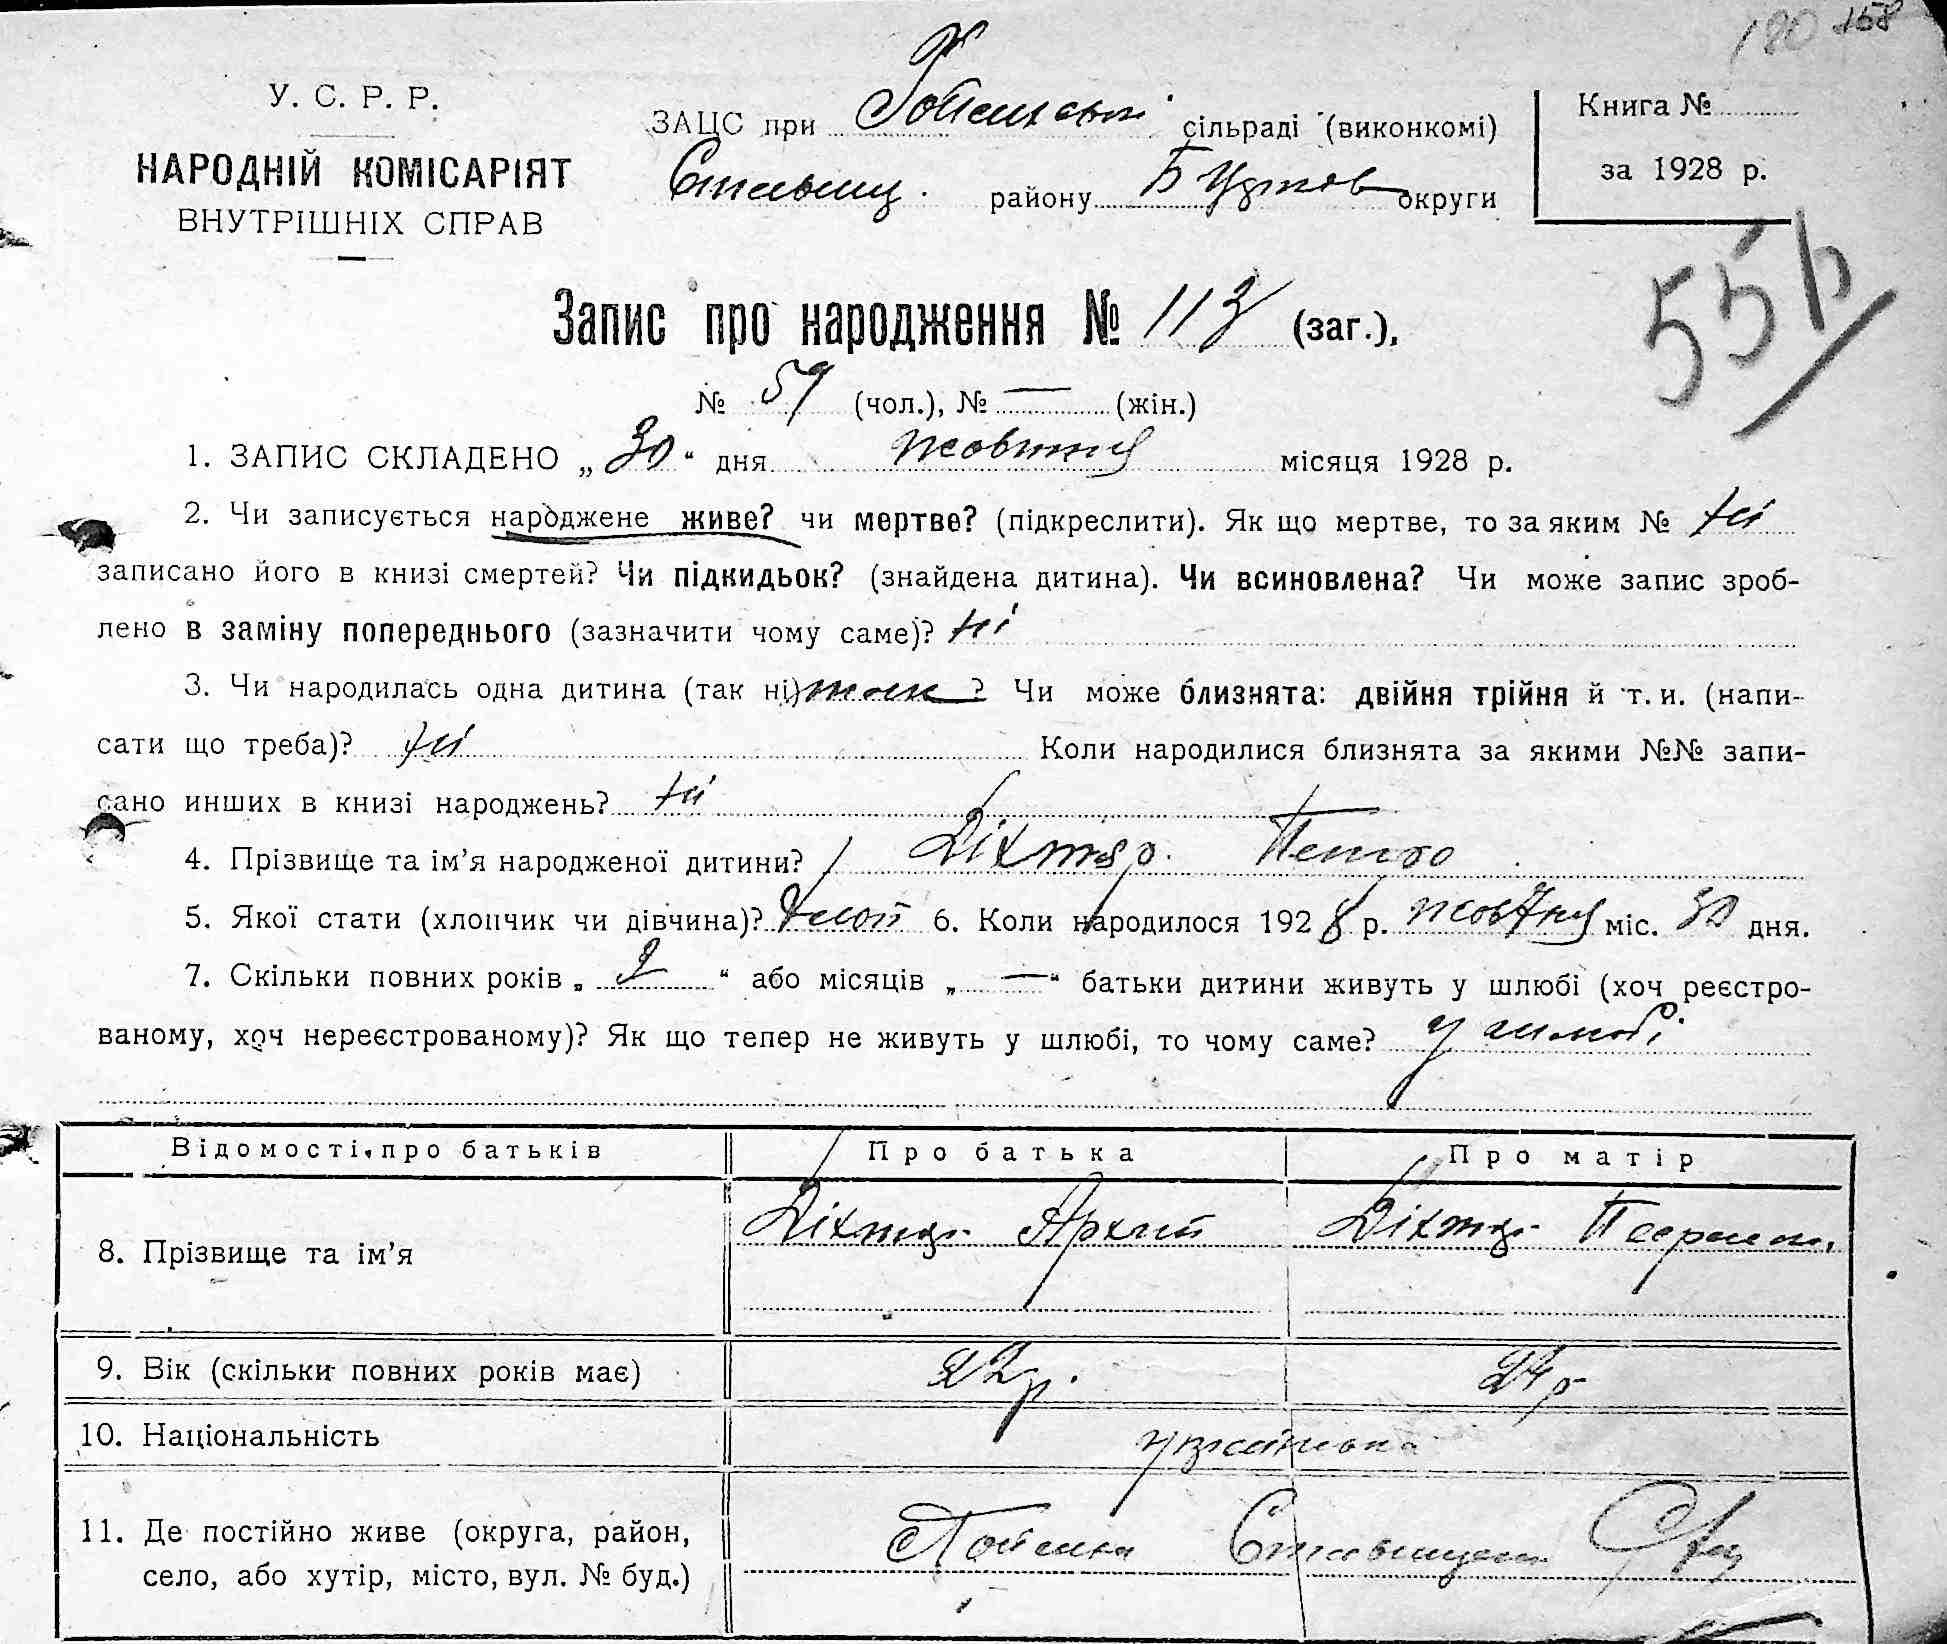 180 158
У. С. Р. Р.
НАРОДНІЙ КОМІСАРІЯТ
ВНУТРІШНІХ СПРАВ
ЗАЦС при сільраді (виконкомі)
району округи
Книга №
за 1928 р.
Запис про народження № 113 (заг.),
№ 59 (чол.), № — (жін.)
1. ЗАПИС СКЛАДЕНО „30“ дня жовтня місяця 1928 р.
2. Чи записується народжене живе? чи мертве? (підкреслити). Як що мертве, то за яким № ні
записано його в книзі смертей? Чи підкидьок? (знайдена дитина). Чи всиновлена? Чи може запис зроб-
лено в заміну попереднього (зазначити чому саме)? ні
3. Чи народилась одна дитина (так ні) так? Чи може близнята: двійня трійня й т. и. (напи-
сати що треба)? ні Коли народилися близнята за якими №№ запи-
сано инших в книзі народжень? ні
4. Прізвище та ім’я народженої дитини? Діхтяр Петро
5. Якої стати (хлопчик чи дівчина)? 6. Коли народилося 1928 р. жовтня міс. 30 дня.
7. Скільки повних років „ “ або місяців „—“ батьки дитини живуть у шлюбі (хоч реєстро-
ваному, хоч нереєстрованому)? Як що тепер не живуть у шлюбі, то чому саме? у шлюбі
Відомості про батьків Про батька Про матір
8. Прізвище та ім’я Діхтяр Архип Діхтяр
9. Вік (скільки повних років має) 22 р. 24 р
10. Національність українська
11. Де постійно живе (округа, район,
село, або хутір, місто, вул. № буд.)